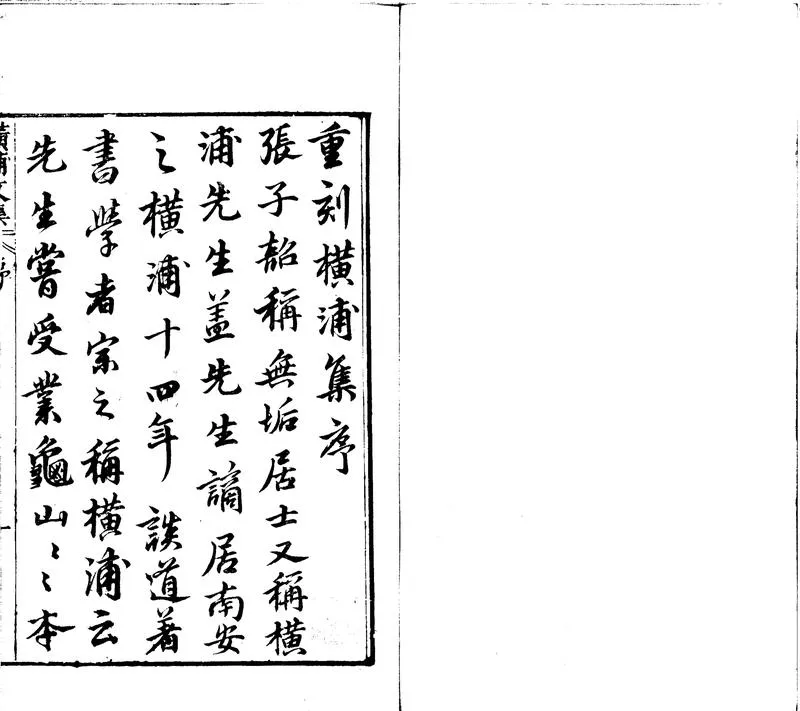 重刻橫浦集序
張子韶稱無垢居士又稱橫
浦先生盖先生謫居南安
之橫浦十四年談道著
書學者宗之稱橫浦云
先生嘗受業龜山〻本
橫浦文集 序